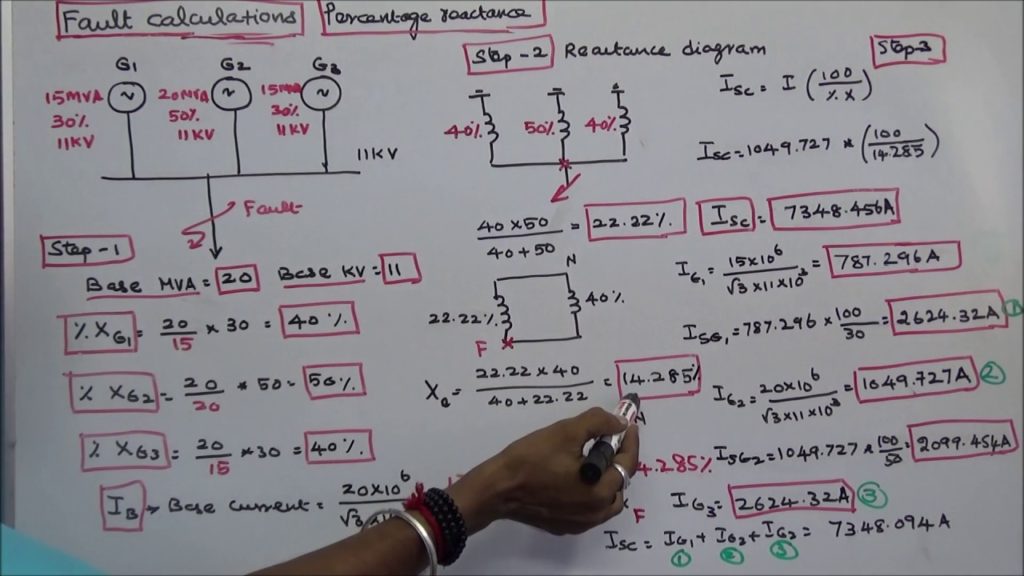 Fault calculations
Percentage reactance
G1 G2 G3
15MVA 20MVA 15MVA
30% 50% 30%
11KV 11KV 11KV
11KV
Fault
Step-1
Base MVA = 20 Base KV = 11
% XG1 = 20/15 x 30 = 40%.
% XG2 = 20/20 * 50 = 50%.
% XG3 = 20/15 * 30 = 40%.
IB → Base current = 20x10^6
Step-2 Reactance diagram
40% 50% 40%
40x50/40+50 = 22.22%.
N
22.22% 40%
F
22.22x40/40+22.22 = 14.285%
4.285%
F
Step-3
Isc = I (100/%X)
Isc = 1049.727 * (100/14.285)
Isc = 7348.456A
IG1 = 15x10^6/√3x11x10^3 = 787.296A
ISG1 = 787.296 x 100/30 = 2624.32A 1
IG2 = 20x10^6/√3x11x10^3 = 1049.727A 2
ISG2 = 1049.727 x 100/50 = 2099.454A
IG3 = 2624.32A 3
Isc = IG1 + IG2 + IG3 = 7348.094A
1 2 3